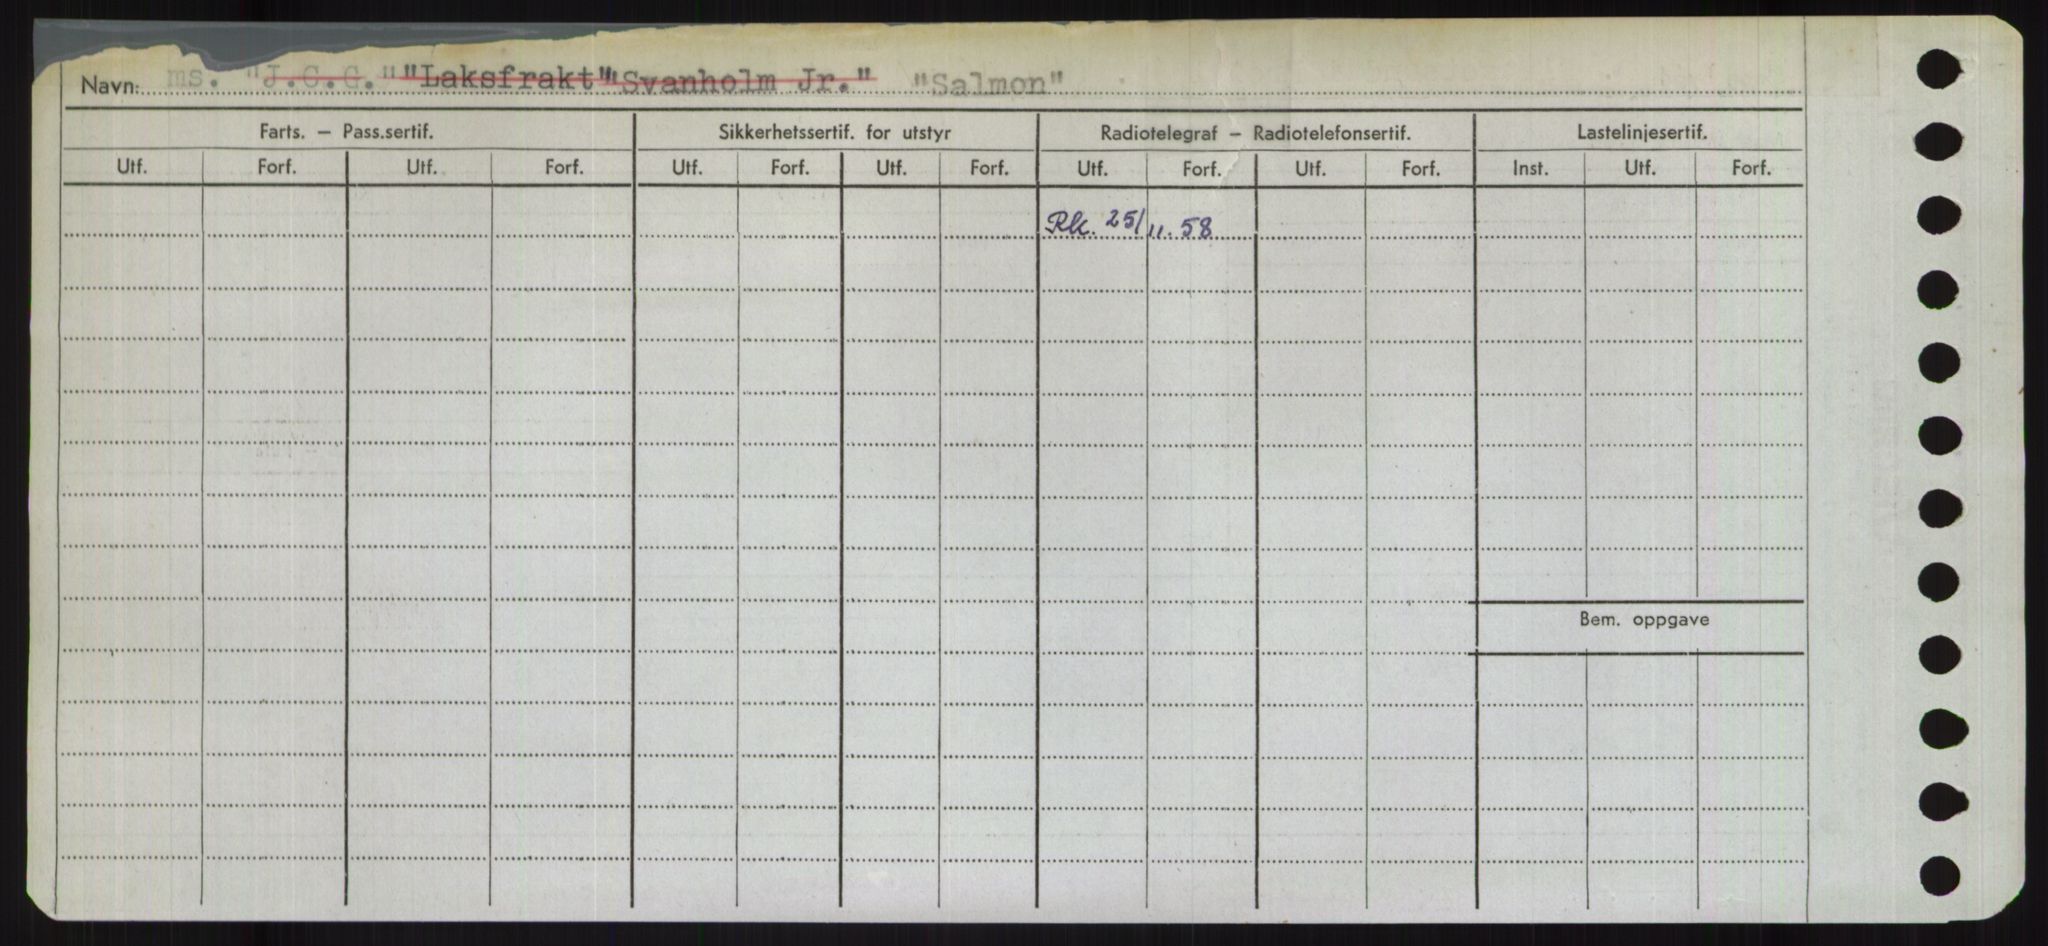 Navn: ms. "J.C.C." "Laksfrakt" "Svanholm Jr." "Salmon"
Farts. – Pass.sertif. Sikkerhetssertif. for utstyr Radiotelegraf – Radiotelefonsertif. Lastelinjesertif.
Utf. Forf. Utf. Forf. Utf. Forf. Utf. Forf. Utf. Forf. Utf. Forf. Inst. Utf. Forf.
Rk. 25/11. 58
Bem. oppgave